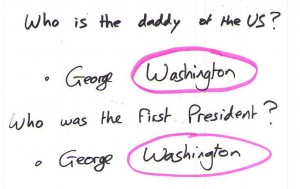 Who is the daddy of the US?
• George Washington
Who was the First President?
• George Washington